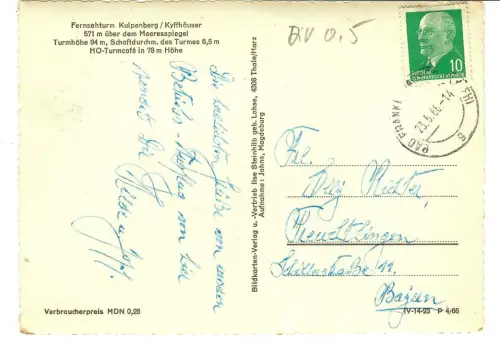 Fernsehturm Kulpenberg / Kyffhäuser
571 m über dem Meeresspiegel
Turmhöhe 94 m, Schaftdurchm. des Turmes 6,5 m
HO-Turmcafé in 78 m Höhe
BV 0.5
10
BAD FRANKE
23.5.66-14
Die herzlichsten Grüße von unserem
Betriebs-Ausflug von hier
sendet Dir
Bildkarten-Verlag u. -Vertrieb Ilse Steinhilb geb. Lohse, 4308 Thale/Harz
Aufnahme: Jahns, Magdeburg
Frl.
Richter,
Treuchtlingen
Schillerstraße 11
Bayern
Verbraucherpreis MDN 0,25
IV-14-23 P 4/66